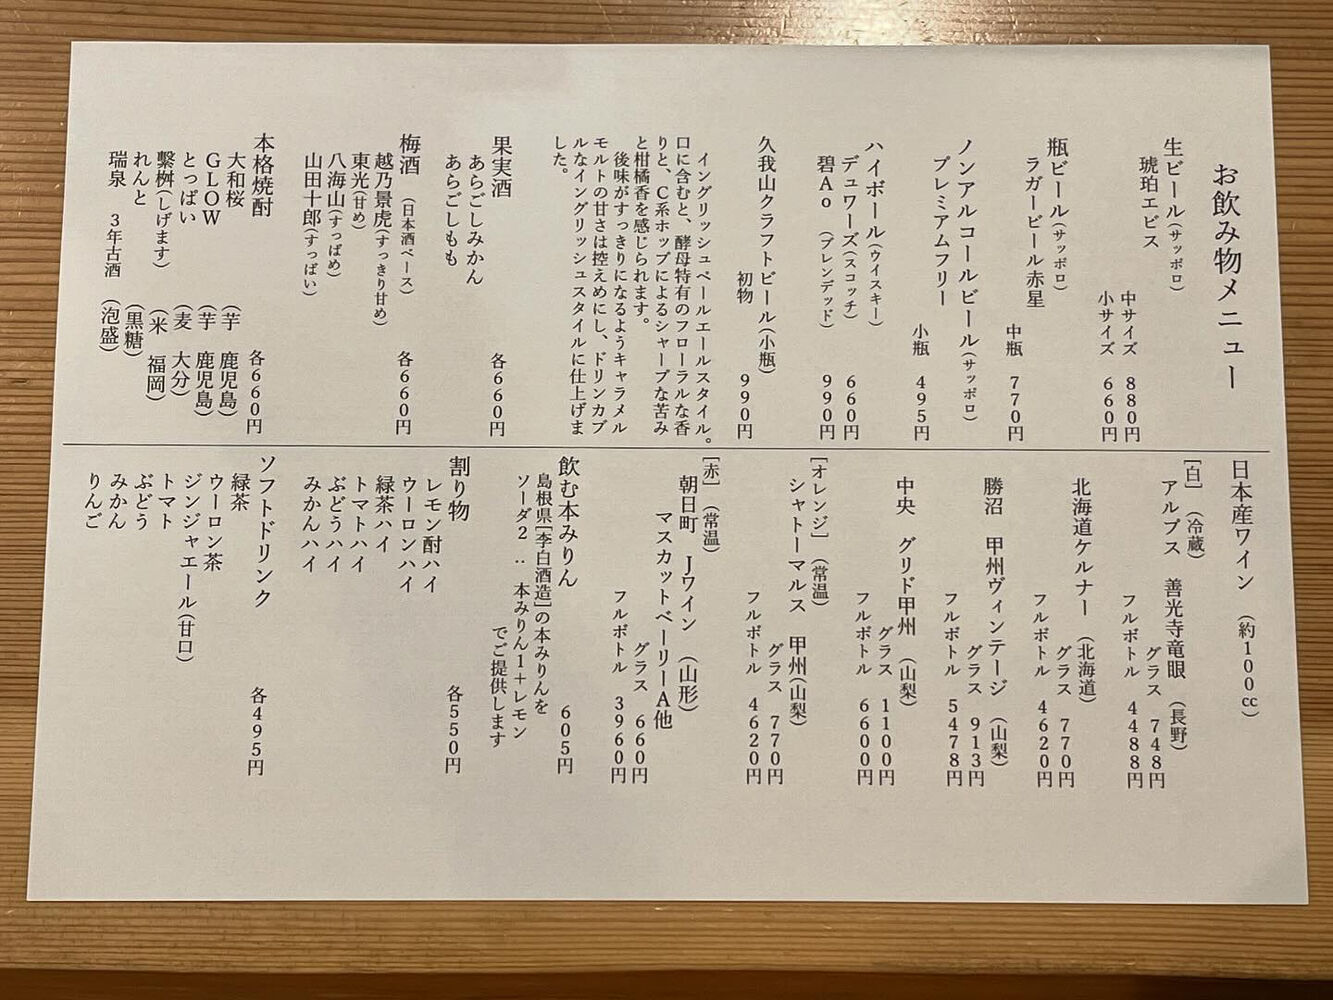 お飲み物メニュー
生ビール(サッポロ)
琥珀エビス
中サイズ 880円
小サイズ 660円
瓶ビール(サッポロ)
ラガービール赤星
中瓶 770円
ノンアルコールビール(サッポロ)
プレミアムフリー
小瓶 495円
ハイボール(ウイスキー)
デュワーズ(スコッチ) 660円
碧Ao (ブレンデッド) 990円
久我山クラフトビール(小瓶)
初物 990円
イングリッシュペールエールスタイル。
口に含むと、酵母特有のフローラルな香
りと、C系ホップによるシャープな苦み
と柑橘香を感じられます。
後味がすっきりになるようキャラメル
モルトの甘さは控えめにし、ドリンカブ
ルなイングリッシュスタイルに仕上げま
した。
果実酒 各660円
あらごしみかん
あらごしもも
梅酒 (日本酒ベース) 各660円
越乃景虎(すっきり甘め)
東光(甘め)
八海山(すっぱめ)
山田十郎(すっぱい)
本格焼酎 各660円
大和桜 (芋 鹿児島)
GLOW (芋 鹿児島)
とっぱい (麦 大分)
繫桝(しげます) (米 福岡)
れんと (黒糖)
瑞泉 3年古酒 (泡盛)
日本産ワイン (約100cc)
[白] (冷蔵)
アルプス 善光寺竜眼 (長野)
グラス 748円
フルボトル 4488円
北海道ケルナー (北海道)
グラス 770円
フルボトル 4620円
勝沼 甲州ヴィンテージ (山梨)
グラス 913円
フルボトル 5478円
中央 グリド甲州 (山梨)
グラス 1100円
フルボトル 6600円
[オレンジ] (常温)
シャトーマルス 甲州(山梨)
グラス 770円
フルボトル 4620円
[赤] (常温)
朝日町 Jワイン (山形)
マスカットベーリーA他
グラス 660円
フルボトル 3960円
飲む本みりん 605円
島根県[李白酒造]の本みりんを
ソーダ2:本みりん1+レモン
でご提供します
割り物 各550円
レモン酎ハイ
ウーロンハイ
緑茶ハイ
トマトハイ
ぶどうハイ
みかんハイ
ソフトドリンク 各495円
緑茶
ウーロン茶
ジンジャエール(甘口)
トマト
ぶどう
みかん
りんご